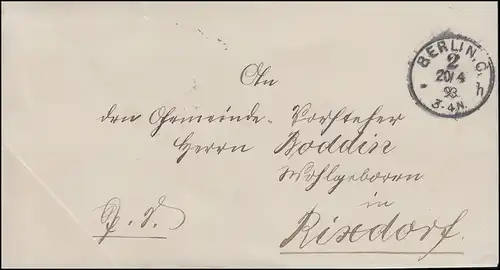 BERLIN, C.
2
20/4
93.
3-4N.
* h
An
den Gemeinde-Vorsteher
Herrn Boddin
Wohlgeboren
in
Rixdorf.